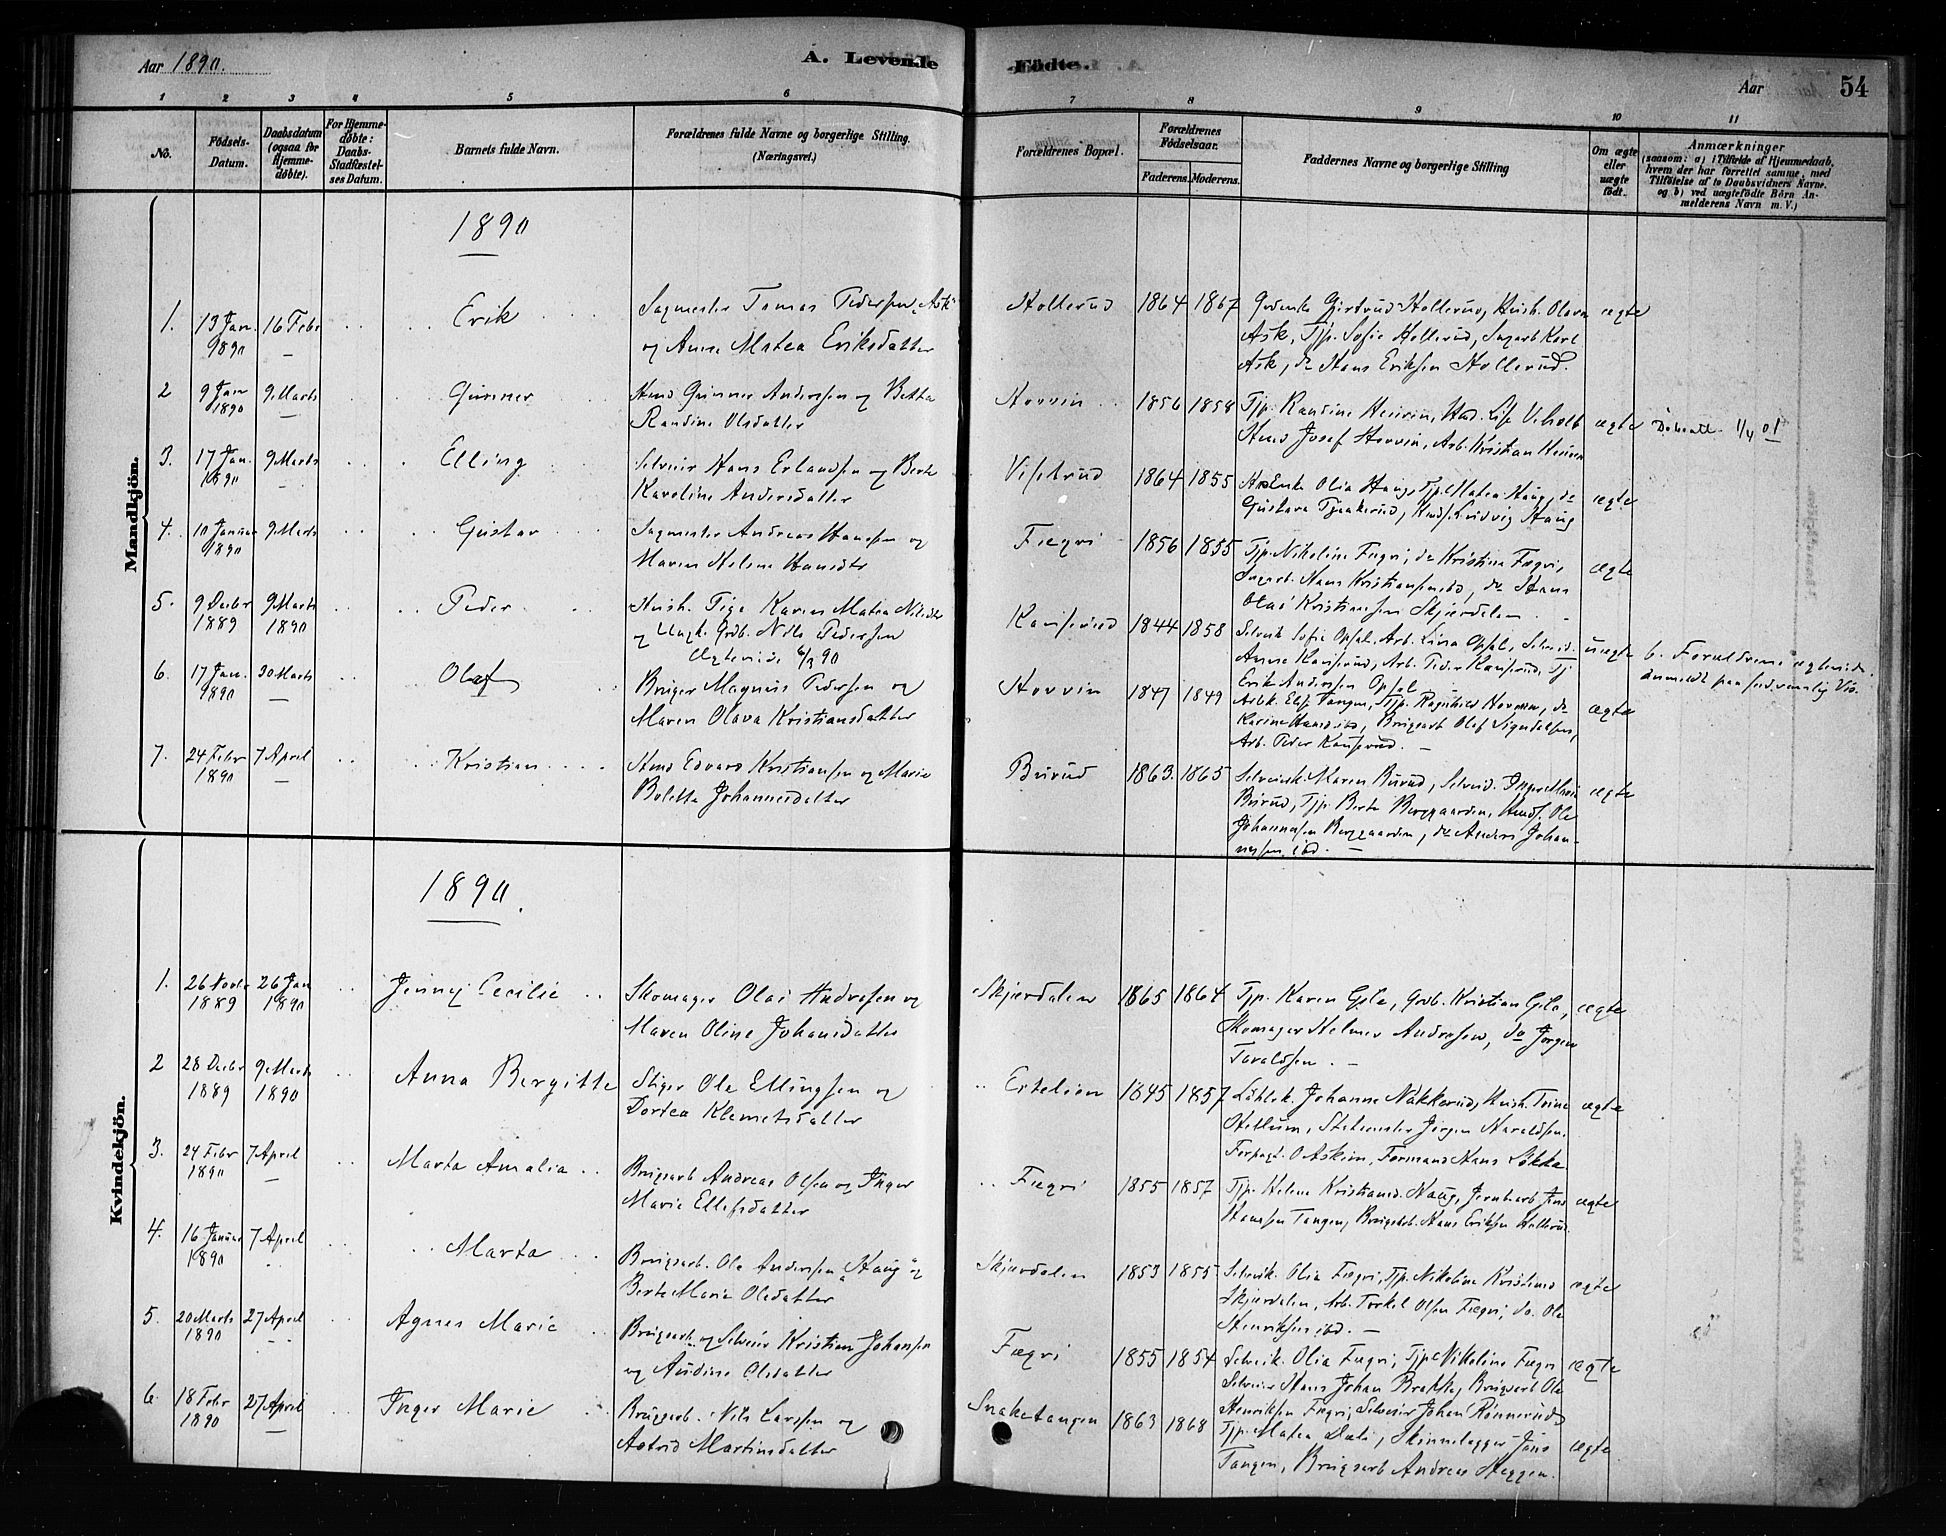 Aar 1890.
A. Levende Fødte.
Aar 54
1 2 3 4 5 6 7 8 9 10 11
No.
Fødsels-Datum.
Daabsdatum (ogsaa for Hjemme-døbte).
For Hjemme-døbte: Daabs-Stadfæstel-ses Datum.
Barnets fulde Navn.
Forældrenes fulde Navne og borgerlige Stilling.
(Næringsvei.)
Forældrenes Bopæl.
Forældrenes Fødselsaar.
Faderens. Moderens.
Faddernes Navne og borgerlige Stilling
Om ægte eller uægte født.
Anmærkninger
(saasom: a) i Tilfælde af Hjemmedaab, hvem der har forrettet samme, med Tilføielse af to Daabsvidners Navne. og b) ved uægtefødte Børn An-melderens Navn m. V.)
Mandkjøn.
1890
1. 13 Jan. 1890 16 Febr Erik Sagmester Tomas Pedersen Ask
og Anne Matea Eriksdatter
Hollerud 1864 1867 Gjertrud Hollerud, Olava
Ask, Tjp. Sofie Hollerud, Sagarb Karl
Ask, do Hans Eriksen Hollerud.
ægte
2 9 Jan 1890 9 Marts Gunner Hmd Gunner Andersen og Betha
Randine Olsdatter
Hovvin 1856 1858 Tjp. Randine
Hmd Josef Hovvin, Arb. Kristian
ægte 1/4 01
3. 17 Jan. 1890 9 Marts Elling Selveier Hans Erlandsen og Berte
Karoline Andersdatter
Viserud 1864 1855 Olia Haug, Tjp. Matea Haug, do
Gustava Ludvig Haug
ægte
4. 10 Januar 1890 9 Marts Gustav Sagmester Andreas Hansen og
Maren Helene Hansdtr
Fægri 1856 1855 Tjp. Nikoline Fægri, do Kristine Fægri,
Sagarb. Hans Kristiansen ibd, do Hans
Olai Kristiansen Skjærdalen
ægte
5. 9 Decbr 1889 9 Marts 1890 Peder Hush. Pige Karen Matea Nilsdtr
og Ungk. Grdb. Nils Pedersen
Ægteviede 90
1844 1858 Selveik Sofie Opsal, Arb. Lina Opsal,
Anne Peder
Erik Andersen Opsal
uægte b. Forældrene ægteviede,
anmeldt paa sedvanlig Vis.
6. 17 Jan. 1890 30 Marts Olaf Bruger Magnus Pedersen og
Maren Olava Kristiansdatter
Hovvin 1847 1849 Tangen, Tjp. Ragnhild Hovvin, do
Karine Hansd ibd, Brugsarb Olaf
Arb. Peder
ægte
7. 24 Febr 1890 7 April Kristian Hmd Edvard Kristiansen og Marie
Bolette Johannesdatter
Burud 1863. 1865 Maren Burud, Inger Marie
Burud, Tjp. Berte Berggaarden, Ole
Johannesen Berggaarden, do Anders Johan-
nesen ibd.
ægte
Kvindekjøn.
1890.
1. 26 Novbr 1889 26 Jan 1890 Jenny Cecilie Skomager Olai Andresen og
Maren Oline Johansdatter
Skjærdalen 1865 1864 Tjp. Karen Gile, Grdb. Kristian Gile,
Skomager Helmer Andresen, do Jørgen
Taraldsen.
ægte
2 28 Decbr 1889 9 Marts 1890 Anna Bergitte Stiger Ole Ellingsen og
Dortea Klemetsdatter
1845 1857 Johanne Nakkerud, Hush. Trine
Jørgen Haraldsen,
Forpagt. O Askim, Formand Hans Løkke
ægte
3. 24 Febr 1890 7 April Marta Amalia Brugsarb Andreas Olsen og Inger
Marie Ellefsdatter
Fægri 1855 1857 Tjp. Helene Kristiansd. Haug, Jernbarb Jens
Hansen Tangen, Brugsarb. Hans Eriksen Hollerud
ægte
4. 16 Januar 1890 7 April Marta Brugsarb. Ole Andersen "Haug" og
Berte Marie Olsdatter
Skjærdalen 1853 1855 Selveik. Olia Fægri, Tjp. Nikoline Kristiansd
Skjærdalen, Arb. Torkel Olsen Fægri, do. Ole
Henriksen ibd.
ægte
5. 20 Marts 1890 27 April Agnes Marie Brugsarb og Selveier Kristian Johansen
og Andine Olsdatter
Fægri 1855 1854 Selveik. Olia Fægri, Tjp. Nikoline Fægri
Selveier Hans Johan Brakke, Brugsarb Ole
Henriksen Fægri, Selveier Johan Rønnerud
ægte
6. 18 Febr 1890 27 April Inger Marie Brugsarb. Nils Larsen og
Astrid Martinsdatter
Snaketangen 1863 1868 Tjp. Matea Dæli, Skinnelægger Jens
Tangen, Brugsarb Andreas Heggen.
ægte